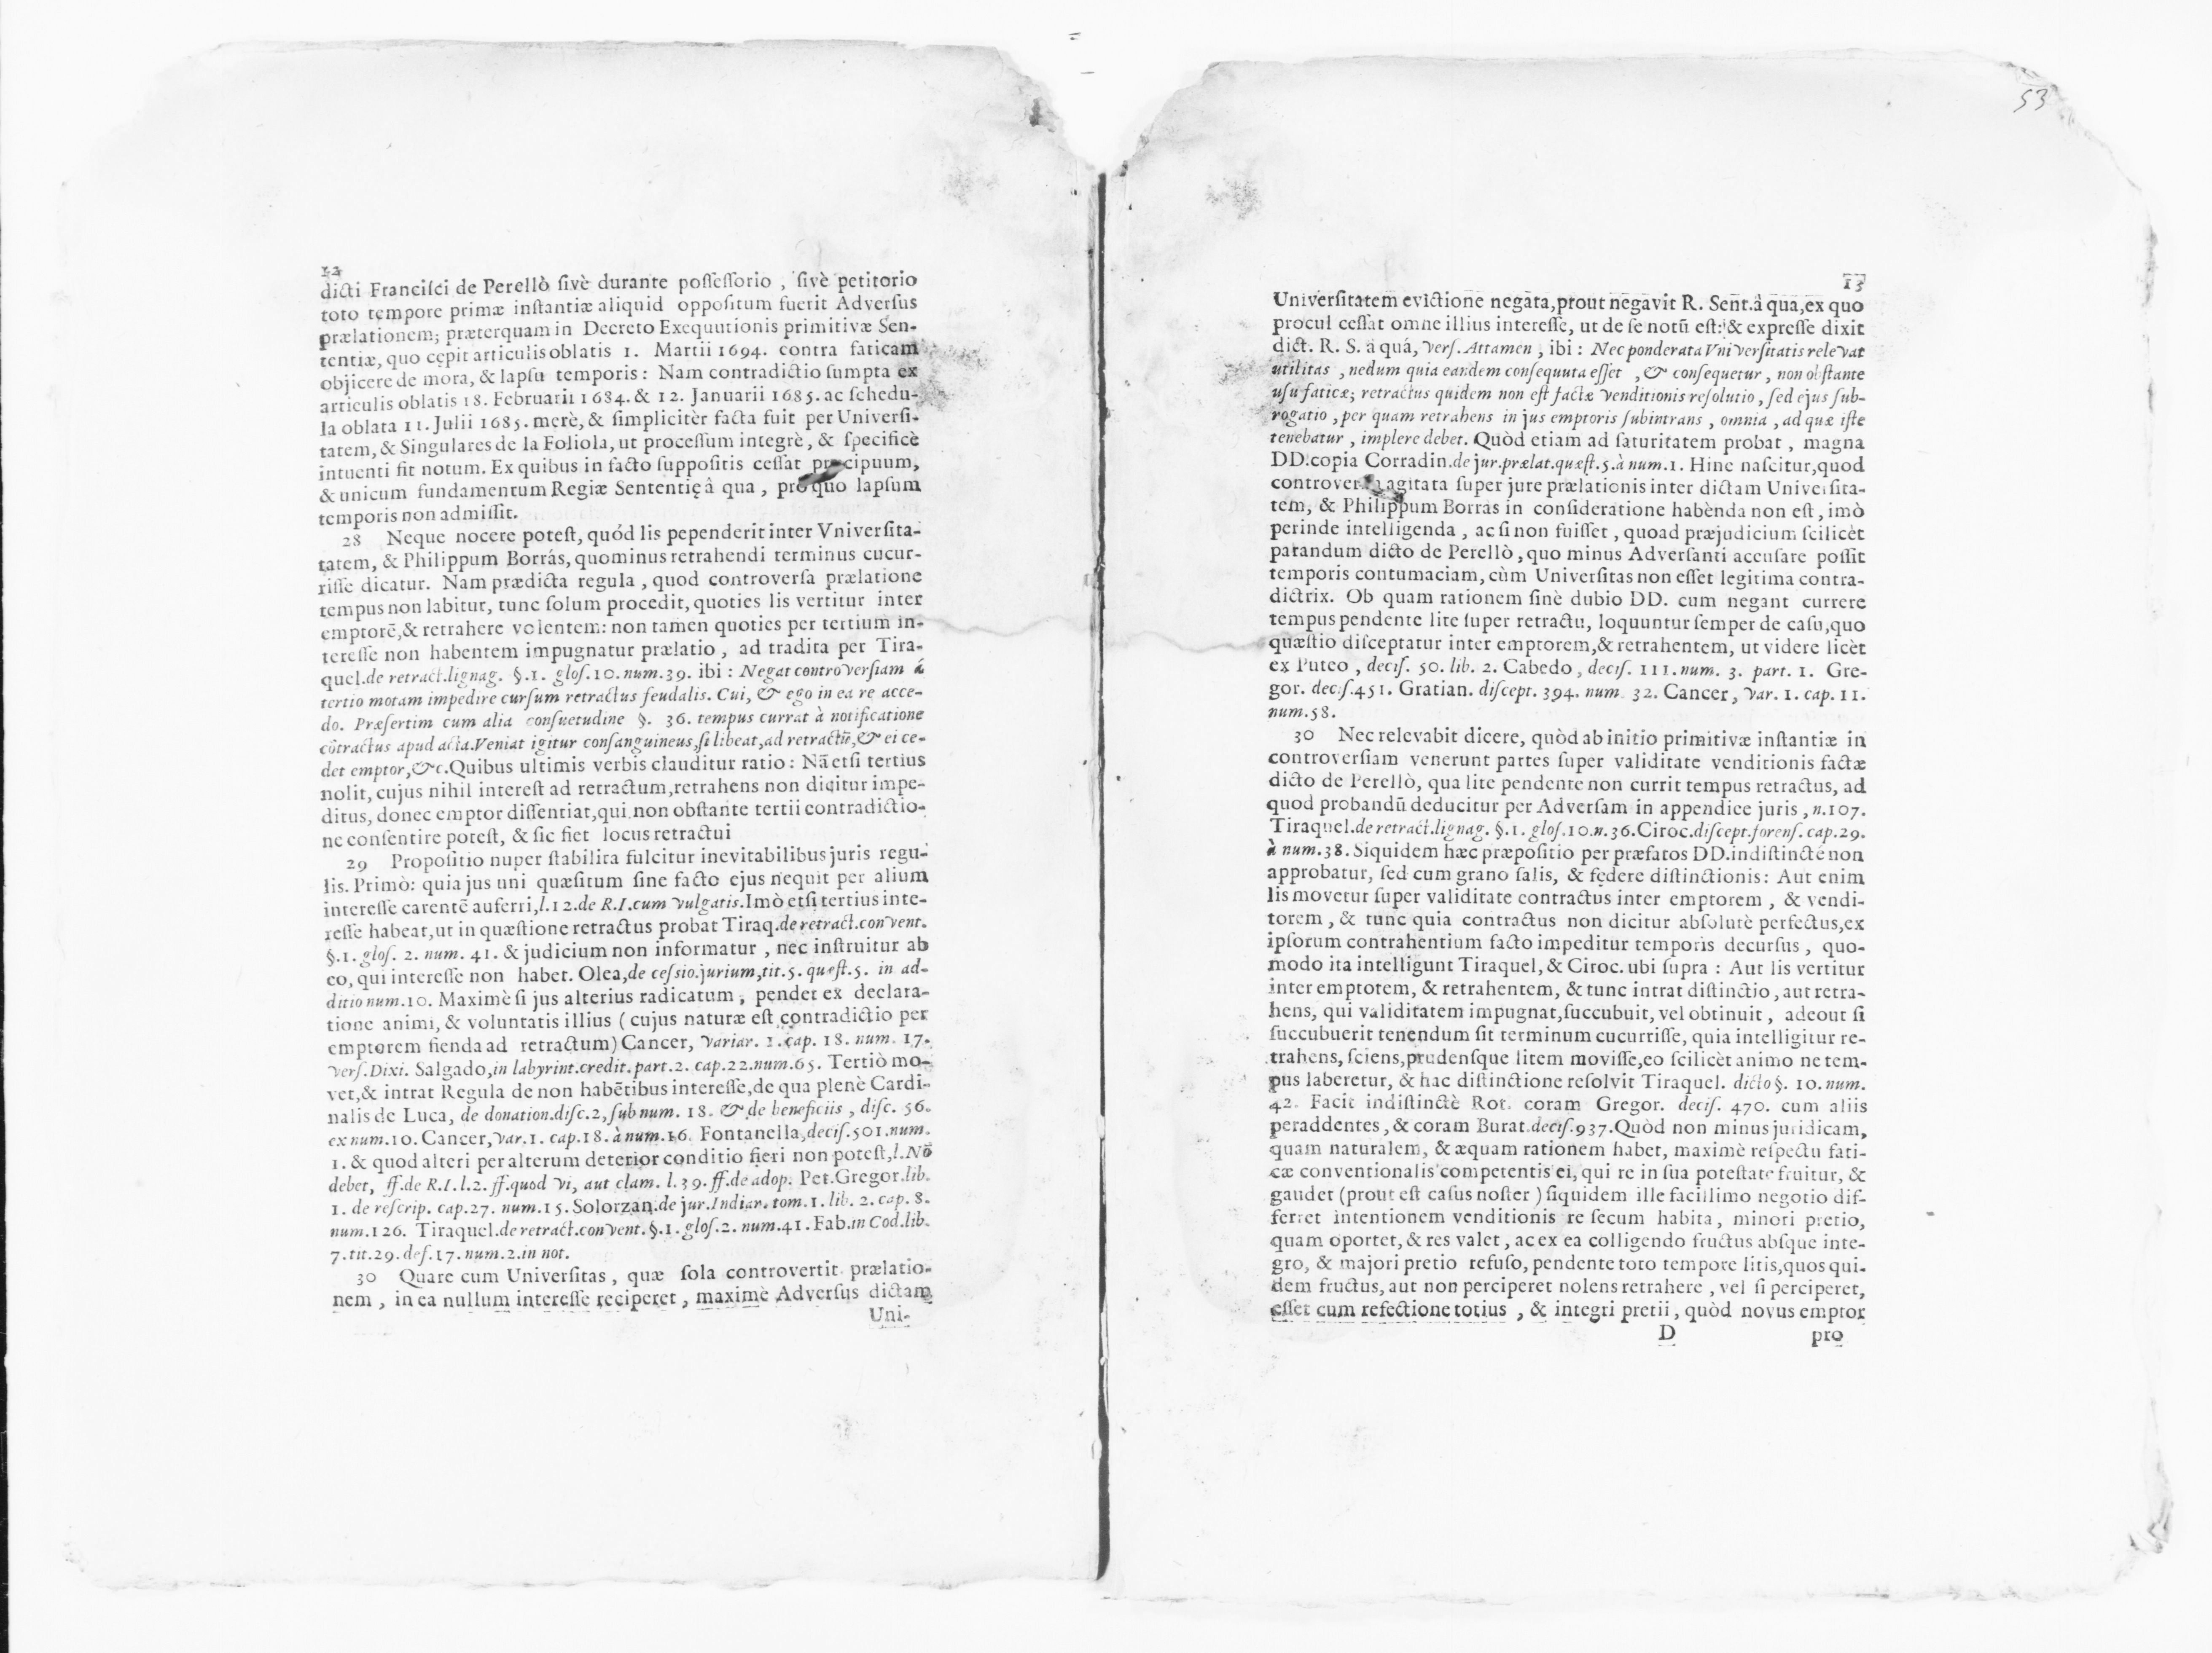 12
dicti Francisci de Perellò sivè durante possessorio , sivè petitorio
toto tempore primæ instantiæ aliquid oppositum fuerit Adversus
prælationem; præterquam in Decreto Exequutionis primitivæ Sen-
tentiæ, quo cępit articulis oblatis 1. Martii 1694. contra faticam
objicere de mora, & lapsu temporis: Nam contradictio sumpta ex
articulis oblatis 18. Februarii 1684. & 12. Januarii 1685. ac schedu-
la oblata 11. Julii 1685. merè, & simplicitèr facta fuit per Universi-
tatem, & Singulares de la Foliola, ut processum integrè, & specificè
intuenti fit notum. Ex quibus in facto suppositis cessat præcipuum,
& unicum fundamentum Regiæ Sententię â qua , pro quo lapsum
temporis non admissit.
28 Neque nocere potest, quód lis pependerit inter Vniversita-
tatem, & Philippum Borrás, quominus retrahendi terminus cucur-
risse dicatur. Nam prædicta regula , quod controversa prælatione
tempus non labitur, tunc solum procedit, quoties lis vertitur inter
emptorē,& retrahere volentem: non tamen quoties per tertium in-
teresse non habentem impugnatur prælatio , ad tradita per Tira-
quel.de retract.lignag. §.1. glos.10.num.39. ibi : Negat controversiam á
tertio motam impedire cursum retractus feudalis. Cui, & ego in ea re acce-
do. Præsertim cum alia consuetudine §. 36. tempus currat à notificatione
cōtractus apud acta.Veniat igitur consanguineus,si libeat,ad retractū,& ei ce-
det emptor,&c.Quibus ultimis verbis clauditur ratio: Nā etsi tertius
nolit, cujus nihil interest ad retractum,retrahens non dicitur impe-
ditus, donec emptor dissentiat,qui non obstante tertii contradictio-
ne consentire potest, & sic fiet locus retractui
29 Propositio nuper stabilita fulcitur inevitabilibus juris regu-
lis. Primò: quia jus uni quæsitum sine facto ejus nequit per alium
interesse carentē auferri,l.12.de R.I.cum vulgatis.Imò etsi tertius inte-
resse habeat,ut in quæstione retractus probat Tiraq.de retract.convent.
§.1. glos. 2. num. 41. & judicium non informatur , nec instruitur ab
eo, qui interesse non habet. Olea,de cessio.jurium,tit.5. quest.5. in ad-
ditio num.10. Maximè si jus alterius radicatum , pendet ex declara-
tione animi, & voluntatis illius ( cujus naturæ est contradictio per
emptorem fienda ad retractum) Cancer, variar. 1.cap. 18. num. 17.
vers.Dixi. Salgado,in labyrint.credit.part.2. cap.22.num.65. Tertiò mo-
vet,& intrat Regula de non habētibus interesse,de qua plenè Cardi-
nalis de Luca, de donation.disc.2,sub num. 18. & de beneficiis , disc. 56.
ex num.10. Cancer,var.1. cap.18. à num.16. Fontanella,decis.501.num.
1. & quod alteri per alterum deterior conditio fieri non potest,l.Nō
debet, ff.de R.I.l.2. ff.quod vi, aut clam. l.39.ff.de adop. Pet.Gregor.lib.
1. de rescrip. cap.27. num.15.Solorzan.de jur.Indiar.tom.1.lib. 2. cap. 8.
num.126. Tiraquel.de retract.convent.§.1.glos.2. num.41.Fab.in Cod.lib.
7.tit.29.def.17.num.2.in not.
30 Quare cum Universitas , quæ sola controvertit prælatio-
nem , in ea nullum interesse reciperet , maximè Adversus dictam
Uni-
53
13
Universitatem evictione negata,prout negavit R. Sent.â qua,ex quo
procul cessat omne illius interesse, ut de se notū est: & expresse dixit
dict. R. S. â quá, vers.Attamen , ibi : Nec ponderata Universitatis relevat
utilitas , nedum quia eandem consequuta esset , & consequetur , non obstante
usu faticæ; retractus quidem non est factæ venditionis resolutio , sed ejus sub-
rogatio , per quam retrahens in jus emptoris subintrans , omnia , ad quæ iste
tenebatur , implere debet. Quòd etiam ad saturitatem probat , magna
DD.copia Corradin.de jur.prælat.quæst.5.à num.1. Hinc nascitur,quod
agitata super jure prælationis inter dictam Universita-
tem, & Philippum Borras in consideratione habènda non est , imò
perinde intelligenda , ac si non fuisset , quoad præjudicium scilicèt
parandum dicto de Perellò , quo minus Adversanti accusare possit
temporis contumaciam, cùm Universitas non esset legitima contra-
dictrix. Ob quam rationem sinè dubio DD. cum negant currere
tempus pendente lite super retractu, loquuntur semper de casu,quo
quæstio disceptatur inter emptorem,& retrahentem, ut videre licèt
ex Puteo , decis. 50. lib. 2. Cabedo , decis. 111.num. 3. part. 1. Gre-
gor. decis.451. Gratian. discept. 394. num. 32. Cancer , var. 1. cap. 11.
num.58.
30 Nec relevabit dicere, quòd ab initio primitivæ instantiæ in
controversiam venerunt partes super validitate venditionis factæ
dicto de Perellò, qua lite pendente non currit tempus retractus, ad
quod probandū deducitur per Adversam in appendice juris , n.107.
Tiraquel.de retract.lignag. §.1. glos.10.n.36.Ciroc.discept.forens. cap.29.
à num.38. Siquidem hæc præpositio per præfatos DD.indistincté non
approbatur, sed cum grano salis, & fędere distinctionis: Aut enim
lis movetur super validitate contractus inter emptorem , & vendi-
torem , & tunc quia contractus non dicitur absolutè perfectus,ex
ipsorum contrahentium facto impeditur temporis decursus , quo-
modo ita intelligunt Tiraquel, & Ciroc. ubi supra : Aut lis vertitur
inter emptotem, & retrahentem, & tunc intrat distinctio , aut retra-
hens, qui validitatem impugnat,succubuit, vel obtinuit , adeout si
succubuerit tenendum sit terminum cucurrisse, quia intelligitur re-
trahens, sciens,prudensque litem movisse,eo scilicèt animo ne tem-
pus laberetur, & hac distinctione resolvit Tiraquel. dicto §. 10. num.
42. Facit indistinctè Rot. coram Gregor. decis. 470. cum aliis
peraddentes , & coram Burat.decis.937.Quòd non minus juridicam,
quam naturalem, & æquam rationem habet, maximè respectu fati-
cæ conventionalis competentis ei, qui re in sua potestate fruitur, &
gaudet (prout est casus noster ) siquidem ille facillimo negotio dif-
ferret intentionem venditionis re secum habita , minori pretio,
quam oportet, & res valet , ac ex ea colligendo fructus absque inte-
gro, & majori pretio refuso, pendente toto tempore litis,quos qui-
dem fructus, aut non perciperet nolens retrahere , vel si perciperet,
esset cum refectione totius , & integri pretii , quòd novus emptor
D pro